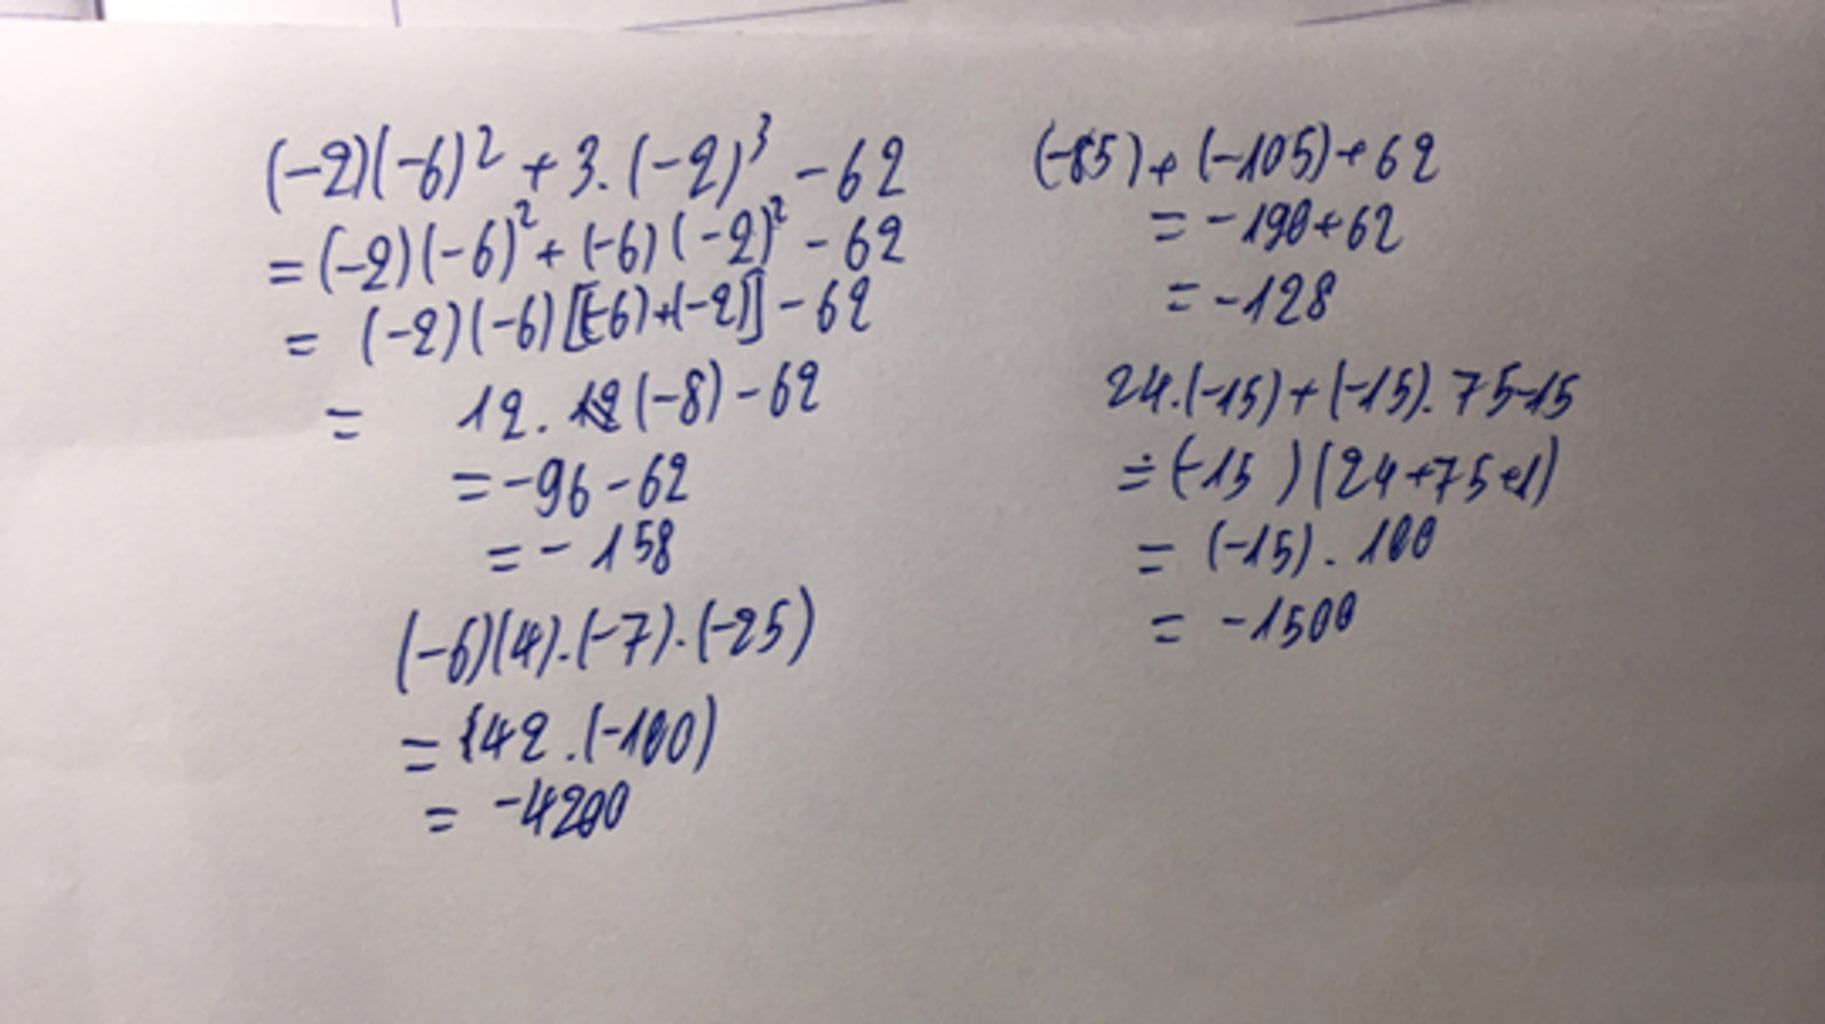 (-2)(-6)² + 3. (-2)³ - 62
= (-2)(-6)² + (-6)(-2)² - 62
= (-2)(-6)[(-6)+(-2)] - 62
= 12. (-8) - 62
= -96 - 62
= - 158
(-6)(4).(-7).(-25)
= 42 .(-100)
= -4200
(-85)+(-105)+62
= -190+62
= -128
24.(-15)+(-15).75-15
= (-15)(24+75+1)
= (-15) . 100
= -1500